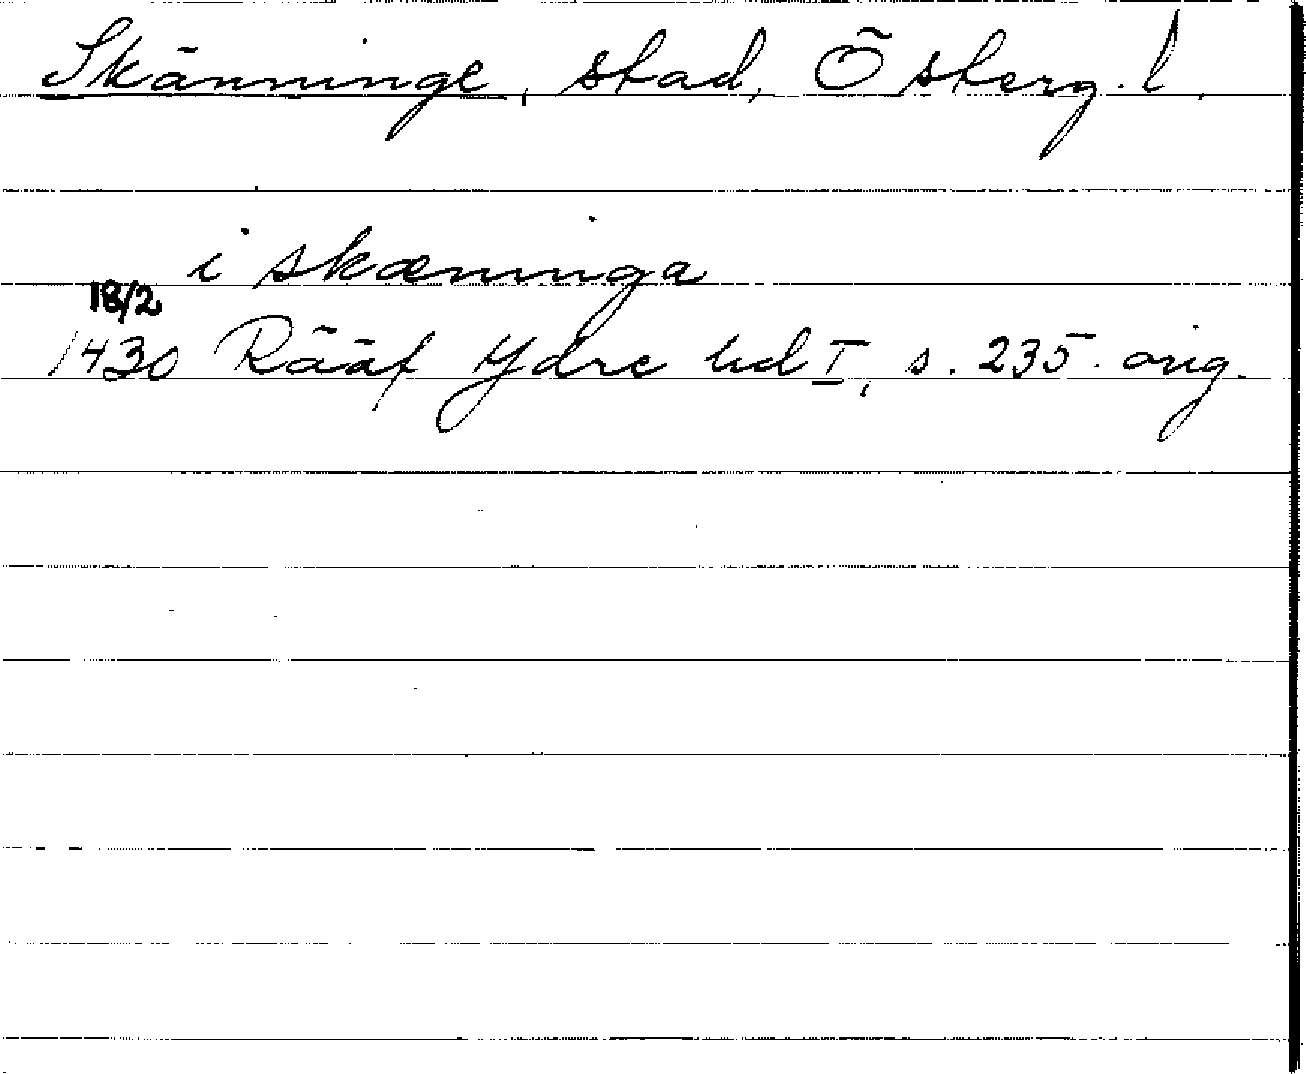 Skänninge, stad, Österg. l.
i skæninga
18/2
1430 Rääf Ydre hd I, s. 235. orig.